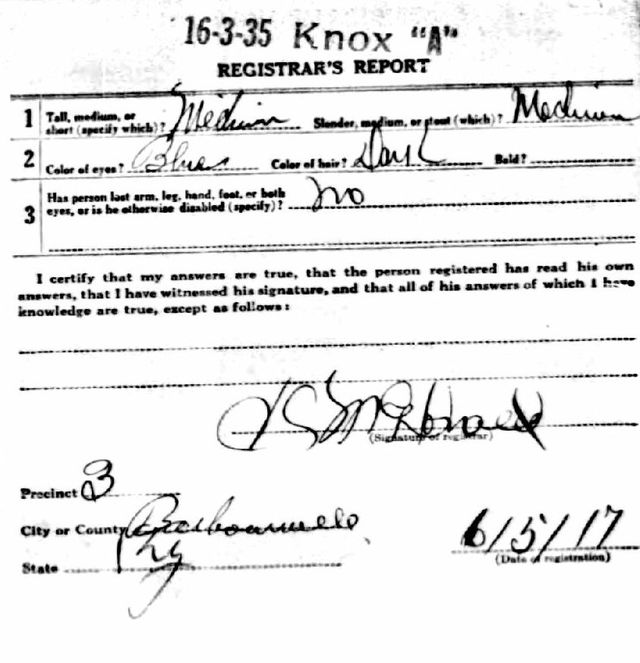 16-3-35 Knox "A"
REGISTRAR'S REPORT
1 Tall, medium, or short (specify which)? Medium Slender, medium, or stout (which)? Medium
2 Color of eyes? Blues Color of hair? Dark Bald?
3 Has person lost arm, leg, hand, foot, or both eyes, or is he otherwise disabled (specify)? No
I certify that my answers are true, that the person registered has read his own
answers, that I have witnessed his signature, and that all of his answers of which I have
knowledge are true, except as follows:
McDonald
(Signature of registrar)
Precinct 3
City or County
State Ky
6/5/17
(Date of registration)